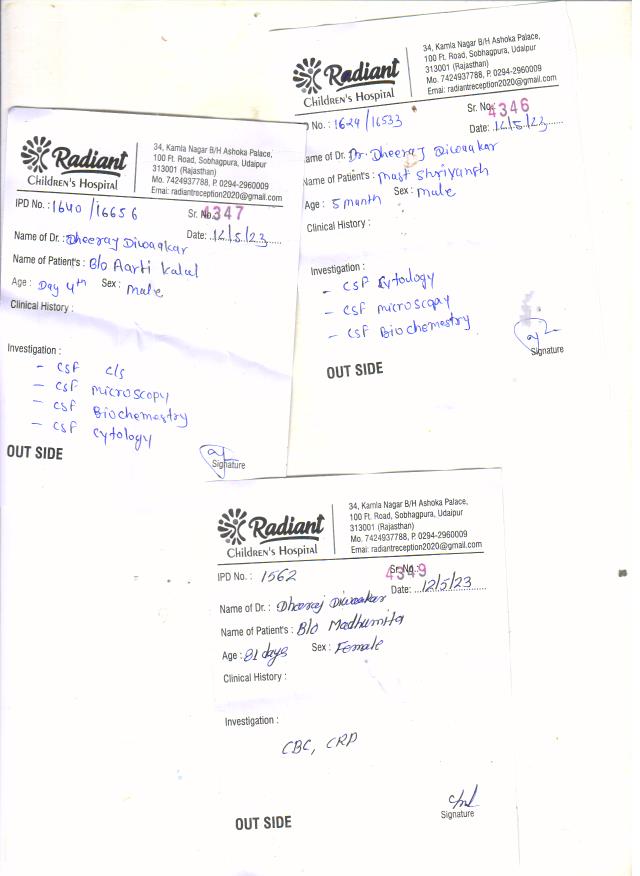 Radiant
Children's Hospital
34, Kamla Nagar B/H Ashoka Palace,
100 Ft. Road, Sobhagpura, Udaipur
313001 (Rajasthan)
Mo. 7424937788, P. 0294-2960009
Emai: radiantreception2020@gmail.com
IPD No. : 1640 / 16656
Sr. No. 4347
Name of Dr. : Dheeraj Diwaakar
Date: 12/5/23
Name of Patient's : B/o Aarti Kalal
Age : Day 4th Sex : Male
Clinical History :
Investigation :
- CSF C/s
- CSF Microscopy
- CSF Biochemestry
- CSF Cytology
OUT SIDE
Signature
Radiant
Children's Hospital
34, Kamla Nagar B/H Ashoka Palace,
100 Ft. Road, Sobhagpura, Udaipur
313001 (Rajasthan)
Mo. 7424937788, P. 0294-2960009
Emai: radiantreception2020@gmail.com
D No. : 1629 / 16533
Sr. No. 4346
Date: 12/5/23
ame of Dr. Dr. Dheeraj Diwaakar
Name of Patient's : Mast Shriyansh
Age : 5 month Sex : Male
Clinical History :
Investigation :
- CSF Cytology
- CSF Microscopy
- CSF Biochemestry
OUT SIDE
Signature
Radiant
Children's Hospital
34, Kamla Nagar B/H Ashoka Palace,
100 Ft. Road, Sobhagpura, Udaipur
313001 (Rajasthan)
Mo. 7424937788, P. 0294-2960009
Emai: radiantreception2020@gmail.com
IPD No. : 1562
Sr. No. : 4349
Name of Dr. : Dheeraj Diwaakar
Date: 12/5/23
Name of Patient's : B/o Madhumita
Age : 21 days Sex : Female
Clinical History :
Investigation :
CBC, CRP
OUT SIDE
Signature